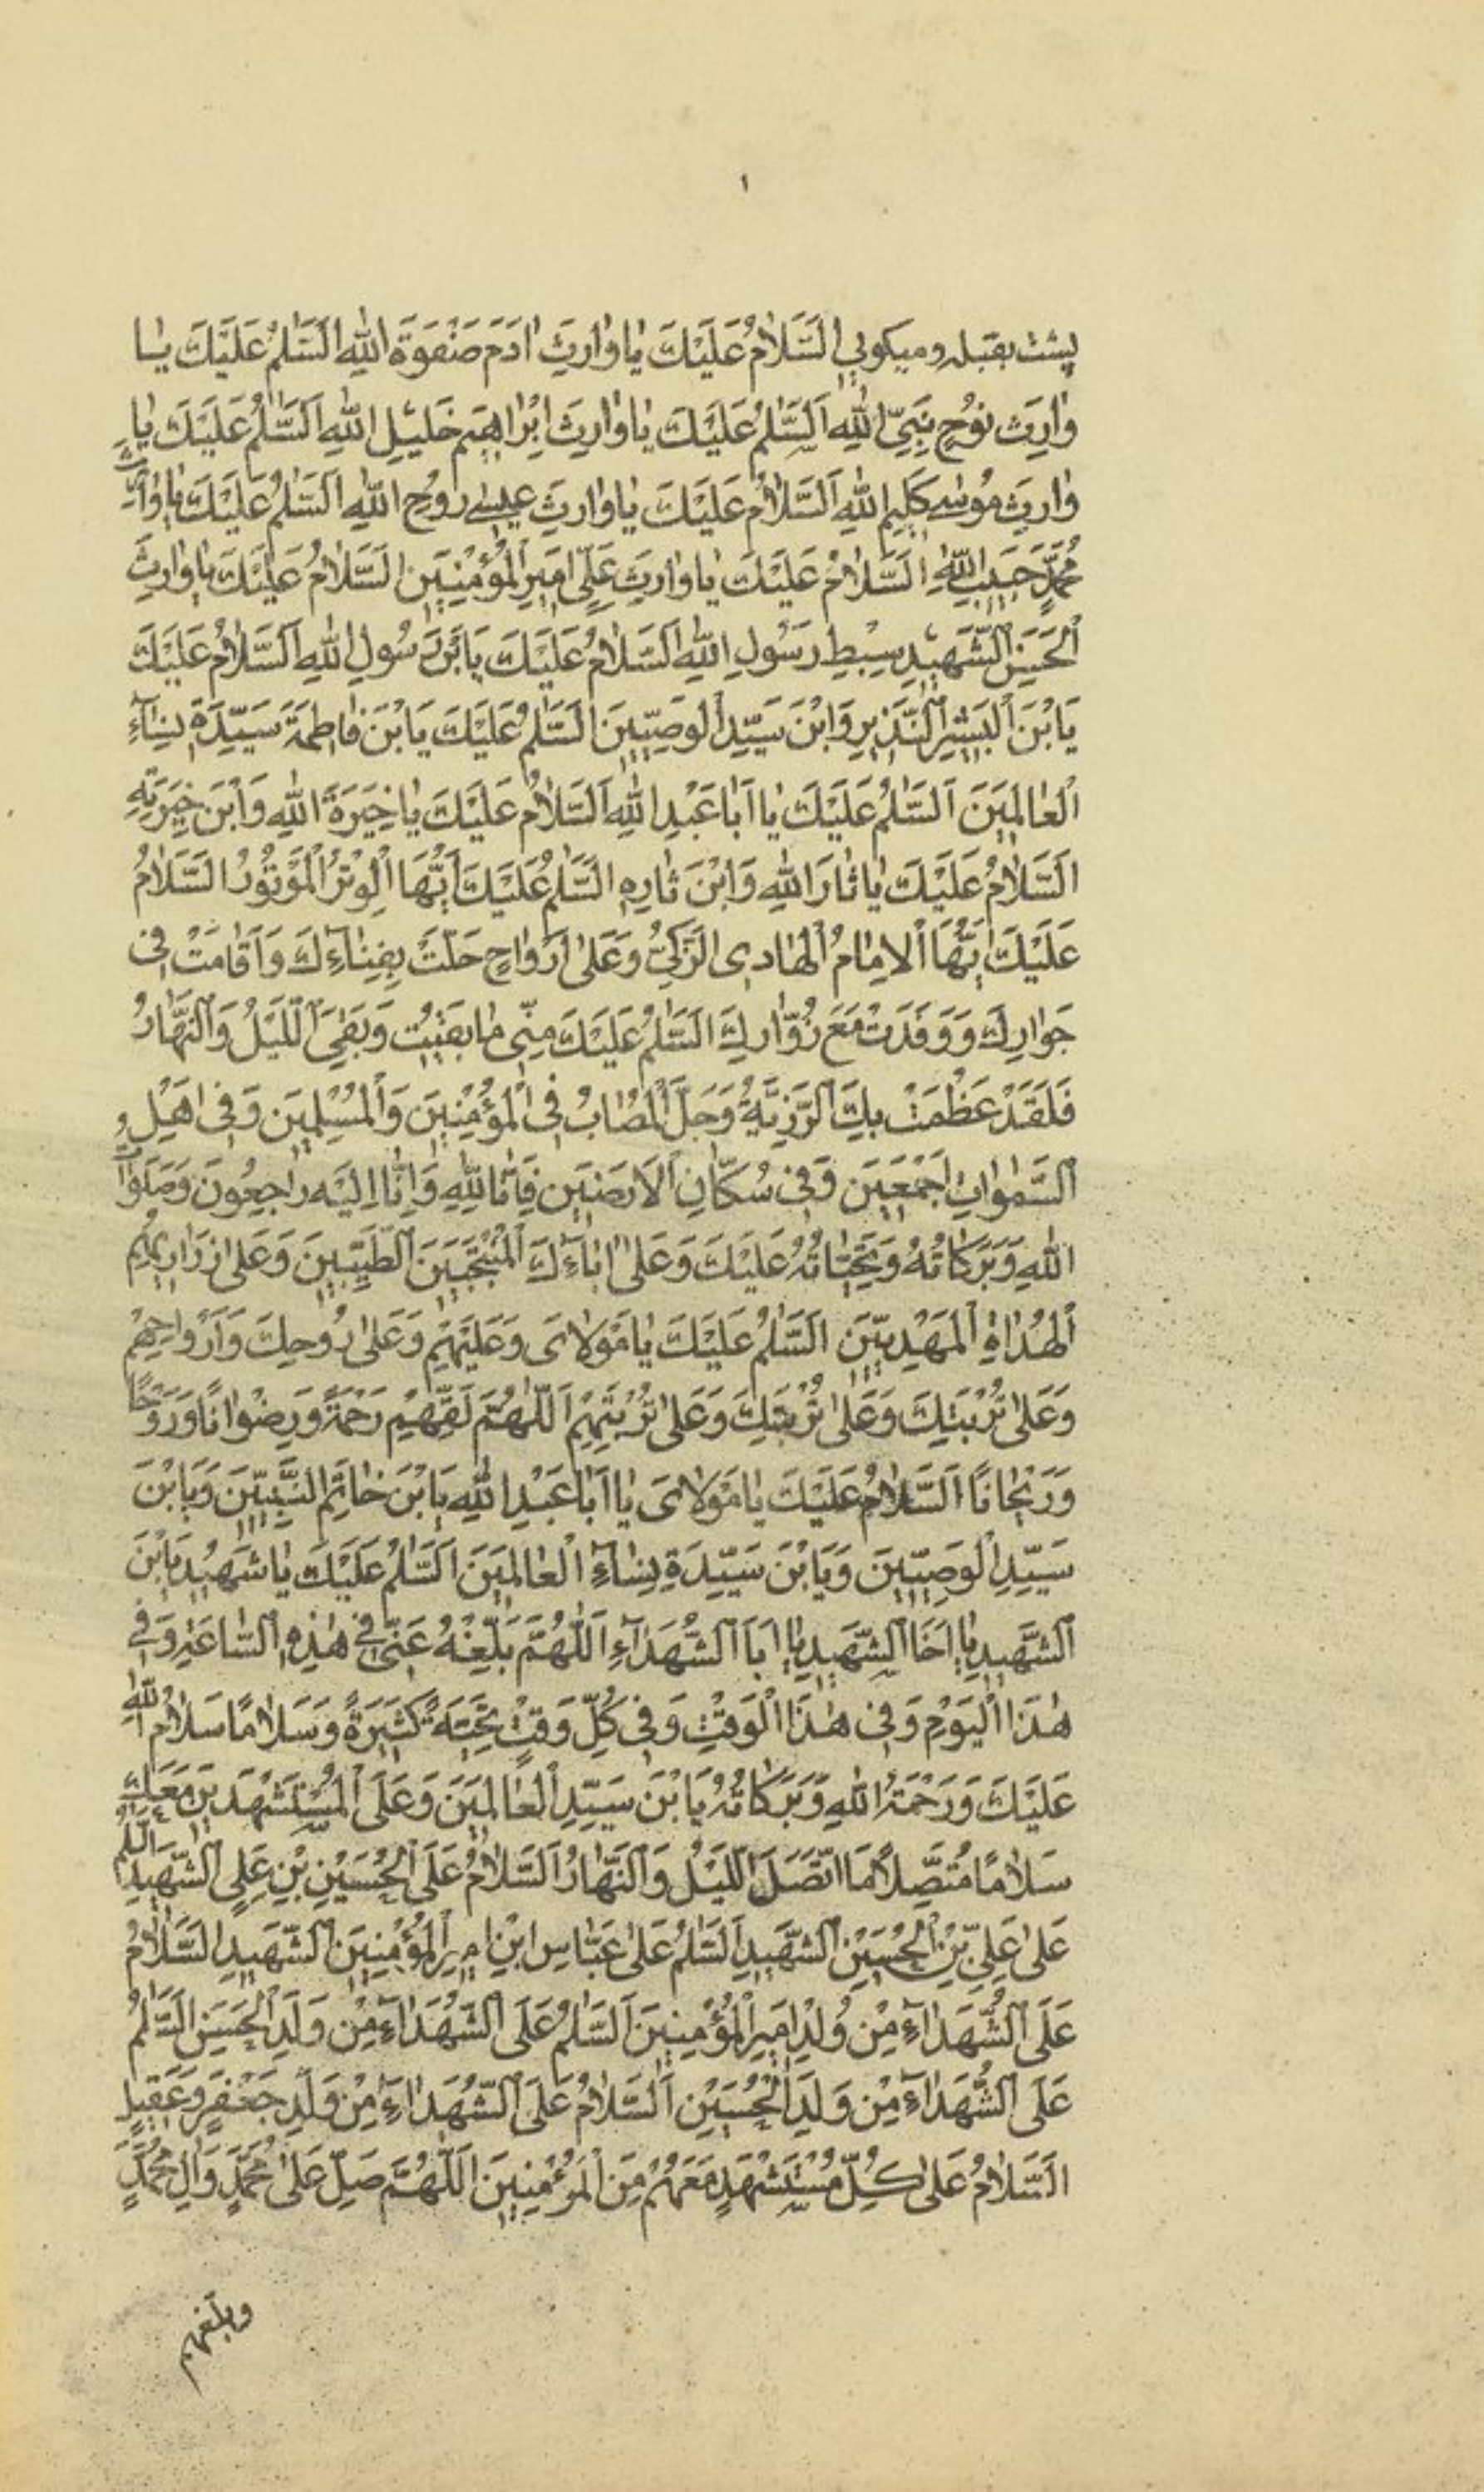 ١
پشت بقبله و میکوبی اَلسَّلامُ عَلَیْكَ یٰا وٰارِثَ اٰدَمَ صَفْوَةِ اللهِ اَلسَّلٰمُ عَلَیْكَ یٰا
وٰارِثَ نُوْحٍ نَبِیِّ اللهِ اَلسَّلٰمُ عَلَیْكَ یٰا وٰارِثَ اِبْرٰاهِیْمَ خَلِیْلِ اللهِ اَلسَّلٰمُ عَلَیْكَ یٰا
وٰارِثَ مُوْسٰی كَلِیْمِ اللهِ اَلسَّلٰامُ عَلَیْكَ یٰا وٰارِثَ عِیْسٰی رُوْحِ اللهِ اَلسَّلٰمُ عَلَیْكَ یٰا وٰارِثَ
مُحَمَّدٍ حَبِیْبِ اللهِ اَلسَّلٰامُ عَلَیْكَ یٰا وٰارِثَ عَلِیٍّ اَمِیْرِ الْمُؤْمِنِیْنَ اَلسَّلٰامُ عَلَیْكَ یٰا وٰارِثَ
الْحَسَنِ الشَّهِیْدِ سِبْطِ رَسُوْلِ اللهِ اَلسَّلٰامُ عَلَیْكَ یَابْنَ رَسُوْلِ اللهِ اَلسَّلٰامُ عَلَیْكَ
یَابْنَ الْبَشِیْرِ النَّذِیْرِ وَابْنَ سَیِّدِ الْوَصِیِّیْنَ اَلسَّلٰمُ عَلَیْكَ یَابْنَ فٰاطِمَةَ سَیِّدَةِ نِسٰآءِ
الْعٰالَمِیْنَ اَلسَّلٰمُ عَلَیْكَ یٰا اَبٰا عَبْدِ اللهِ اَلسَّلٰامُ عَلَیْكَ یٰا خِیَرَةَ اللهِ وَابْنَ خِیَرَتِهِ
اَلسَّلٰامُ عَلَیْكَ یٰا ثٰارَ اللهِ وَابْنَ ثٰارِهِ اَلسَّلٰمُ عَلَیْكَ اَیُّهَا الْوِتْرُ الْمَوْتُوْرُ اَلسَّلٰامُ
عَلَیْكَ اَیُّهَا الْاِمٰامُ الْهٰادِی الزَّكِیُّ وَعَلٰی اَرْوٰاحٍ حَلَّتْ بِفِنٰآءِكَ وَاَقٰامَتْ فِی
جَوٰارِكَ وَوَفَدَتْ مَعَ زُوّٰارِكَ اَلسَّلٰمُ عَلَیْكَ مِنِّی مٰا بَقِیْتُ وَبَقِیَ اللَّیْلُ وَالنَّهٰارُ
فَلَقَدْ عَظُمَتْ بِكَ الرَّزِیَّةُ وَجَلَّ الْمُصٰابُ فِی الْمُؤْمِنِیْنَ وَالْمُسْلِمِیْنَ وَفِی اَهْلِ
السَّمٰوٰاتِ اَجْمَعِیْنَ وَفِی سُكّٰانِ الْاَرَضِیْنَ فَاِنّٰا لِلّٰهِ وَاِنّٰا اِلَیْهِ رٰاجِعُوْنَ وَصَلَوٰاتُ
اللهِ وَبَرَكٰاتُهُ وَتَحِیّٰاتُهُ عَلَیْكَ وَعَلٰی اٰبٰآءِكَ الْمُنْتَجَبِیْنَ الطَّیِّبِیْنَ وَعَلٰی ذَرٰارِیْهِمِ
الْهُدٰاةِ الْمَهْدِیِّیْنَ اَلسَّلٰمُ عَلَیْكَ یٰا مَوْلٰایَ وَعَلَیْهِمْ وَعَلٰی رُوْحِكَ وَاَرْوٰاحِهِمْ
وَعَلٰی تُرْبَتِكَ وَعَلٰی تُرْبَتِكَ وَعَلٰی تُرْبَتِهِمْ اَللّٰهُمَّ لَقِّهِمْ رَحْمَةً وَرِضْوٰانًا وَرَوْحًا
وَرَیْحٰانًا اَلسَّلٰامُ عَلَیْكَ یٰا مَوْلٰایَ یٰا اَبٰا عَبْدِ اللهِ یَابْنَ خٰاتَمِ النَّبِیِّیْنَ وَیَابْنَ
سَیِّدِ الْوَصِیِّیْنَ وَیَابْنَ سَیِّدَةِ نِسٰآءِ الْعٰالَمِیْنَ اَلسَّلٰمُ عَلَیْكَ یٰا شَهِیْدُ یَابْنَ
الشَّهِیْدِ یٰا اَخَا الشَّهِیْدِ یٰا اَبَا الشُّهَدٰآءِ اَللّٰهُمَّ بَلِّغْهُ عَنِّی فِی هٰذِهِ السّٰاعَةِ وَفِی
هٰذَا الْیَوْمِ وَفِی هٰذَا الْوَقْتِ وَفِی كُلِّ وَقْتٍ تَحِیَّةً كَثِیْرَةً وَسَلٰامًا سَلٰامُ اللهِ
عَلَیْكَ وَرَحْمَةُ اللهِ وَبَرَكٰاتُهُ یَابْنَ سَیِّدِ الْعٰالَمِیْنَ وَعَلَی الْمُسْتَشْهَدِیْنَ مَعَكَ
سَلٰامًا مُتَّصِلًا مَا اتَّصَلَ اللَّیْلُ وَالنَّهٰارُ اَلسَّلٰامُ عَلَی الْحُسَیْنِ بْنِ عَلِیٍ الشَّهِیْدِ اَلسَّلٰمُ
عَلٰی عَلِیِّ بْنِ الْحُسَیْنِ الشَّهِیْدِ اَلسَّلٰمُ عَلٰی عَبّٰاسِ ابْنِ اَمِیْرِ الْمُؤْمِنِیْنَ الشَّهِیْدِ اَلسَّلٰامُ
عَلَی الشُّهَدٰآءِ مِنْ وُلْدِ اَمِیْرِ الْمُؤْمِنِیْنَ اَلسَّلٰمُ عَلَی الشُّهَدٰآءِ مِنْ وَلَدِ الْحَسَنِ اَلسَّلٰمُ
عَلَی الشُّهَدٰآءِ مِنْ وَلَدِ الْحُسَیْنِ اَلسَّلٰامُ عَلَی الشُّهَدٰآءِ مِنْ وَلَدِ جَعْفَرٍ وَعَقِیْلٍ
اَلسَّلٰامُ عَلٰی كُلِّ مُسْتَشْهَدٍ مَعَهُمْ مِنَ الْمُؤْمِنِیْنَ اَللّٰهُمَّ صَلِّ عَلٰی مُحَمَّدٍ وَاٰلِ مُحَمَّدٍ
وبلغهم